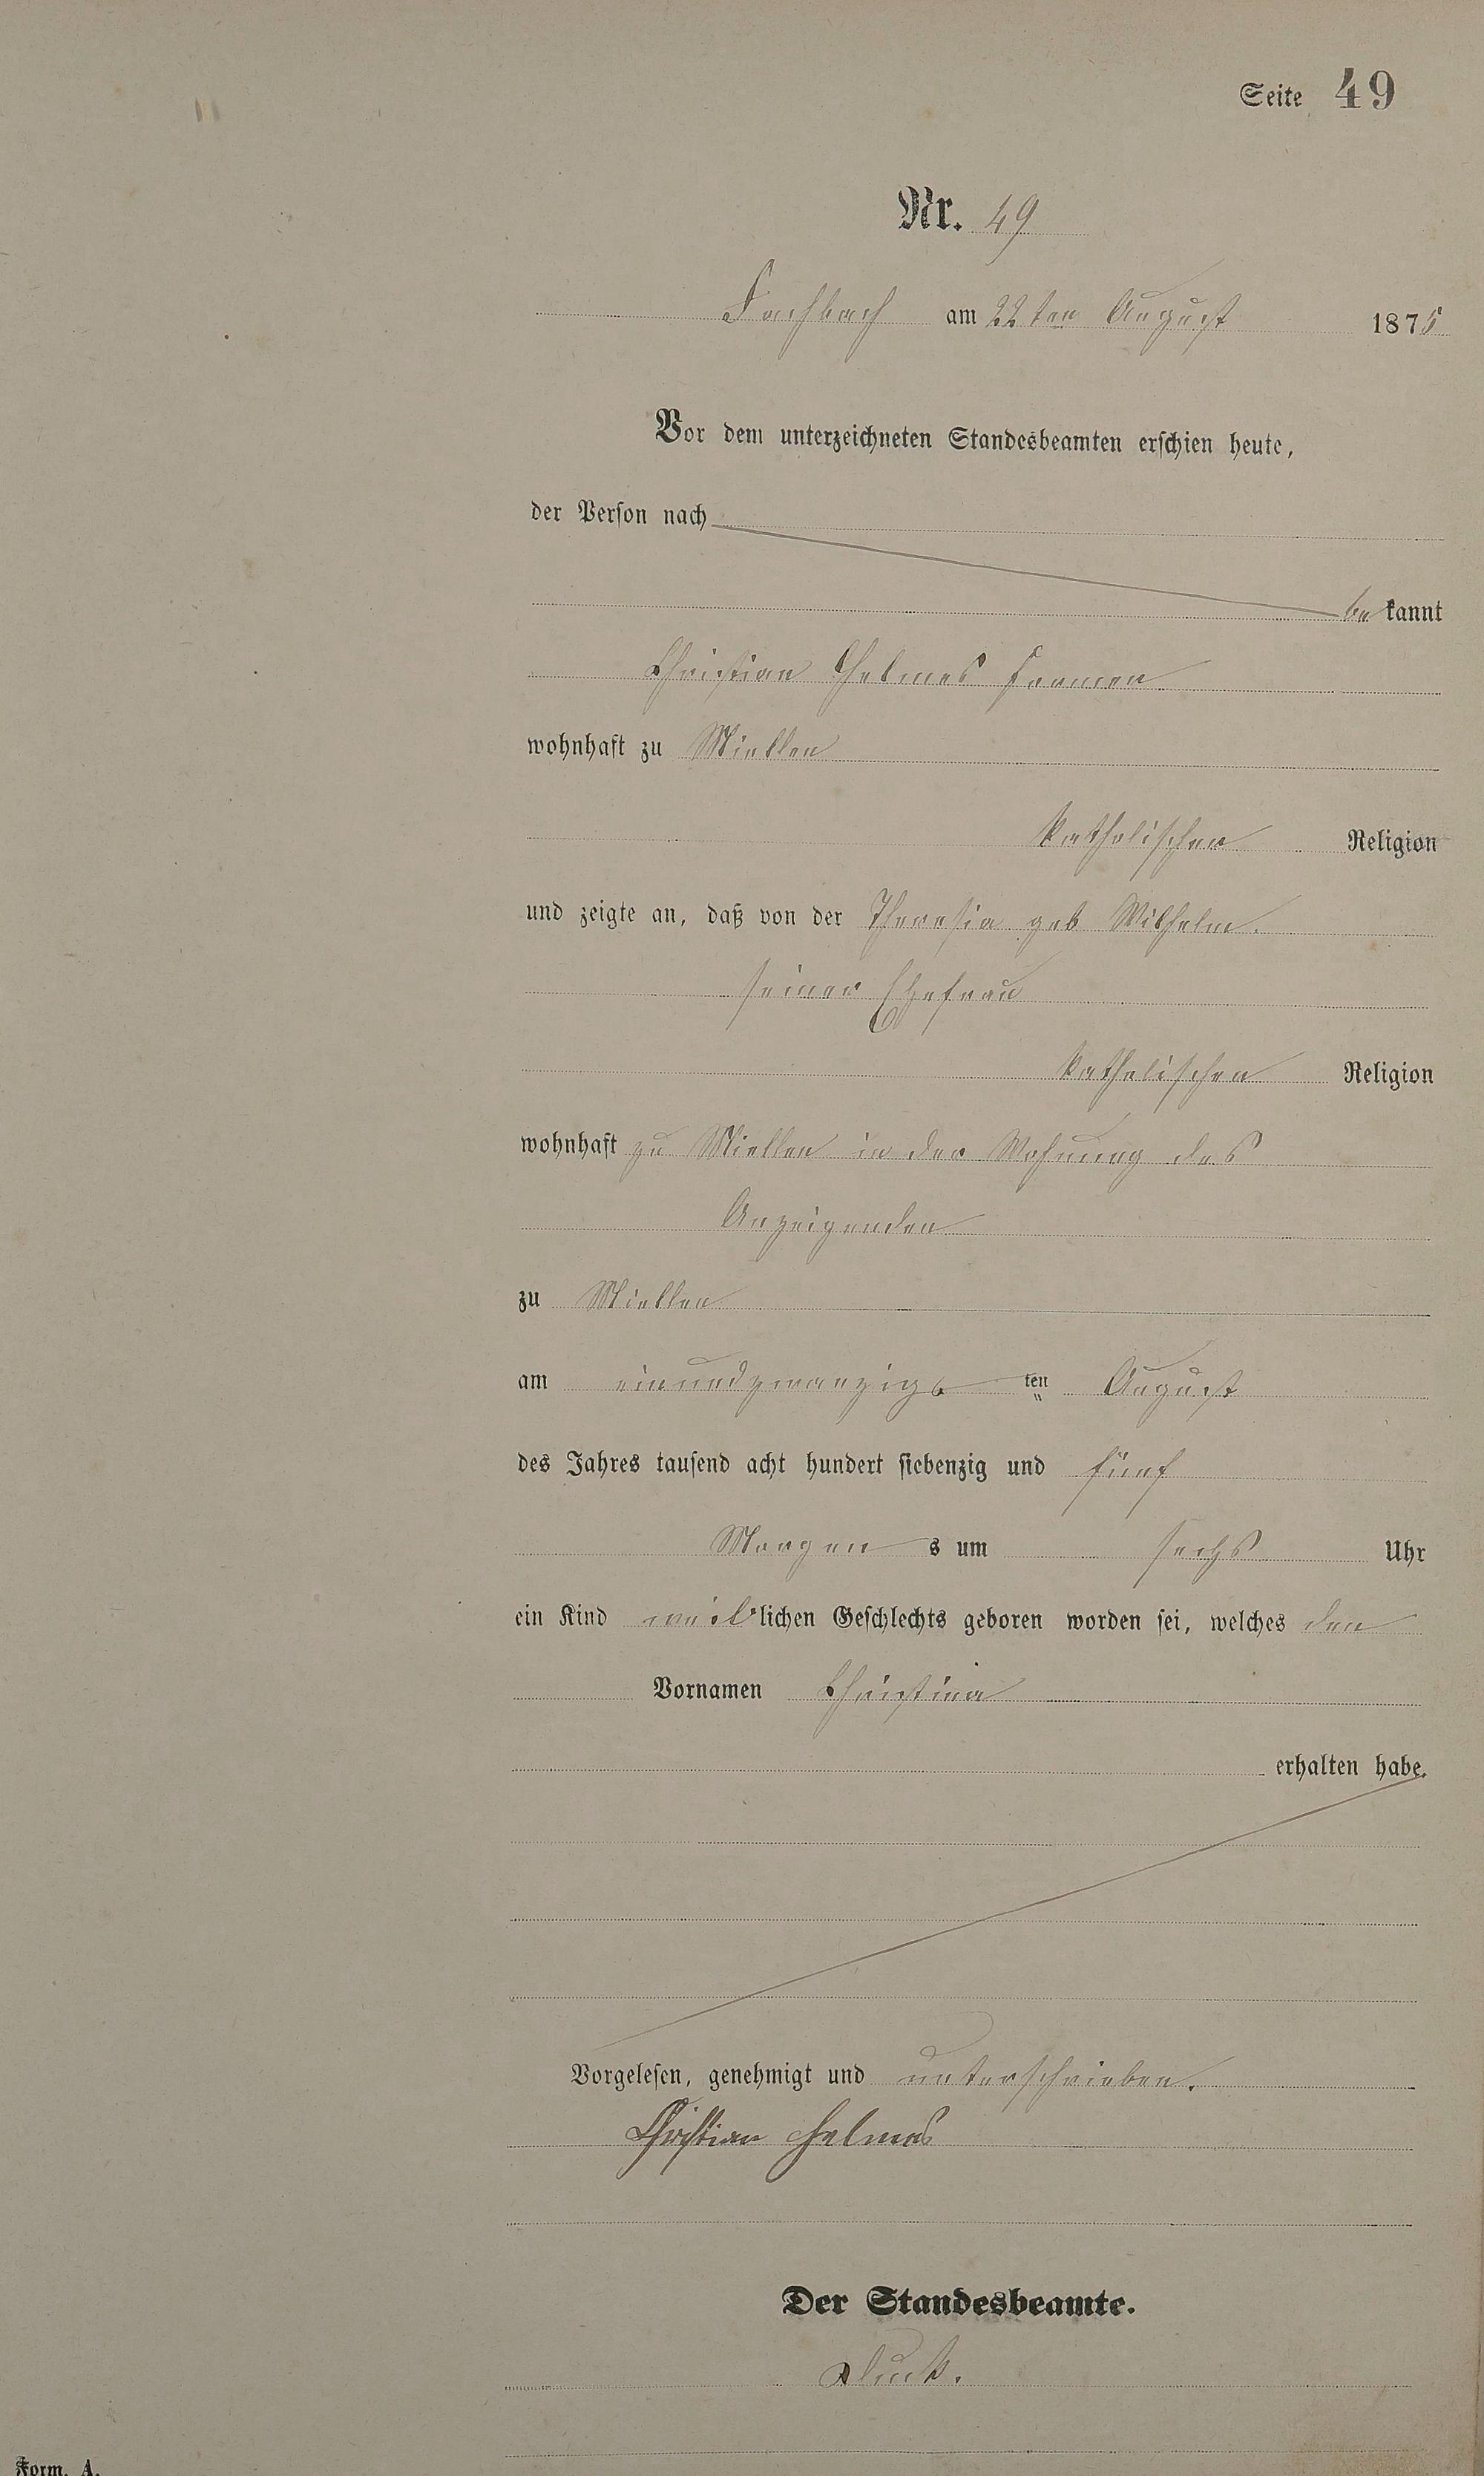 Seite 49
Nr. 49
Fachbach am 22ten August 1875
Vor dem unterzeichneten Standesbeamten erschien heute,
der Person nach
bekannt
Christian Helmes
wohnhaft zu Miellen
katholischen Religion
und zeigte an, daß von der Theresia geb Wilhelm.
seiner Ehefrau
katholischen Religion
wohnhaft zu Miellen in der Wohnung des
Anzeigenden
zu Miellen
am einundzwanzigsten August
des Jahres tausend acht hundert siebenzig und fünf
Morgens um sechs Uhr
ein Kind weiblichen Geschlechts geboren worden sei, welches den
Vornamen Christina
erhalten habe.
Vorgelesen, genehmigt und unterschrieben.
Christian Helmes
Der Standesbeamte.
Form. A.